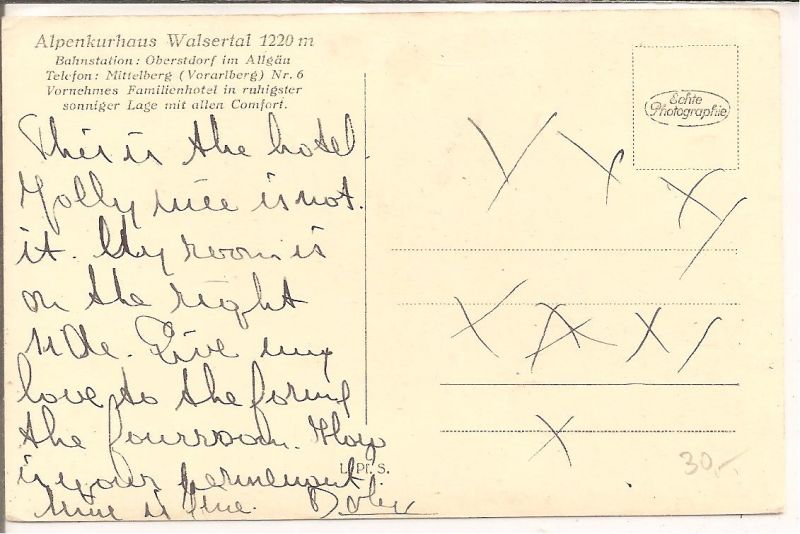 Alpenkurhaus Walsertal 1220 m
Bahnstation: Oberstdorf im Allgäu
Telefon: Mittelberg (Vorarlberg) Nr. 6
Vornehmes Familienhotel in ruhigster
sonniger Lage mit allen Comfort.
Echte
Photographie
This is the hotel.
Jolly nice is not
it. My room is
on the right
side. Give my
love to the
the fourroom. How
is your permenent
mine is fine.
L. Pf. S.
30,-